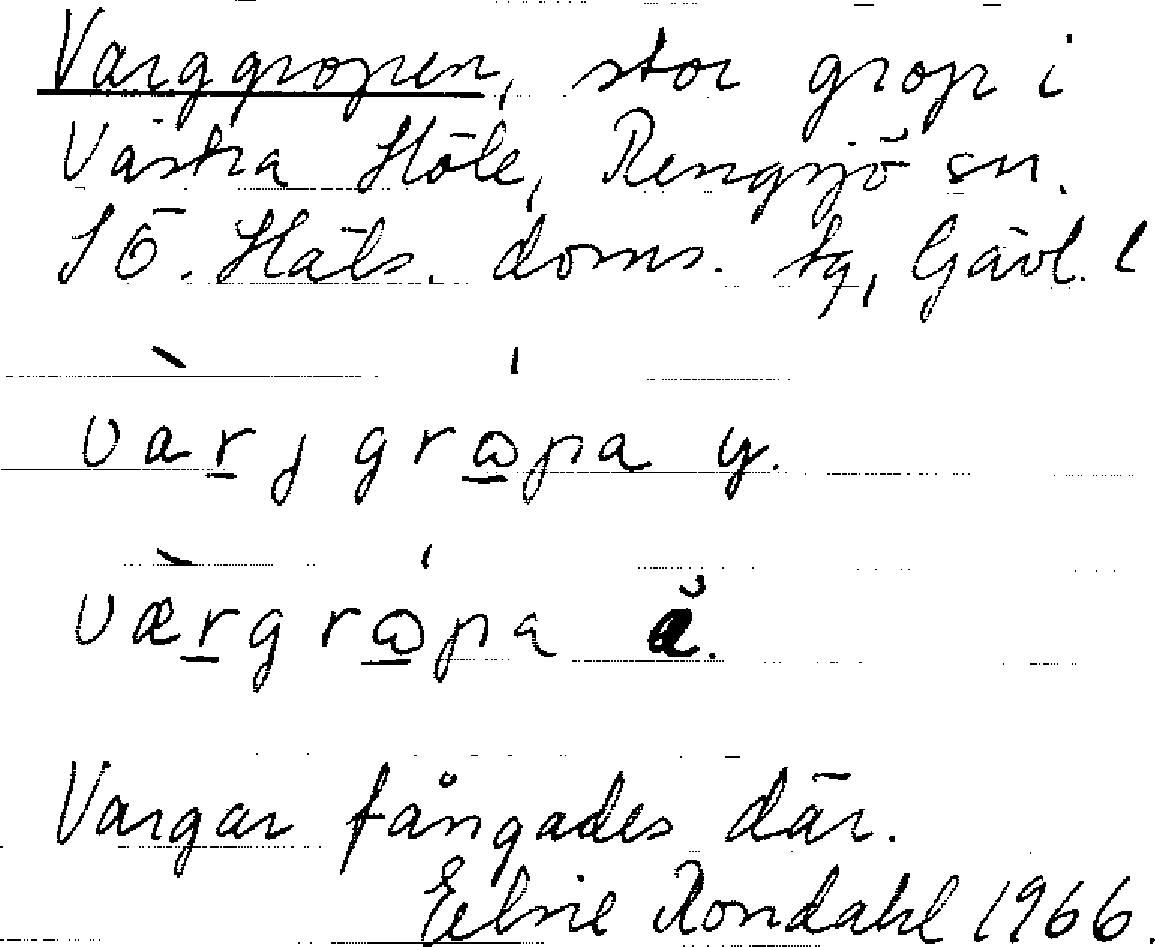 Varggropen, stor grop i
Västra Höle, Rengsjö sn.
SÖ. Häls. doms. tg, Gävl. l
vàrj grópa y.
værgrópa ä.
Vargar fångades där.
Rondahl 1966.